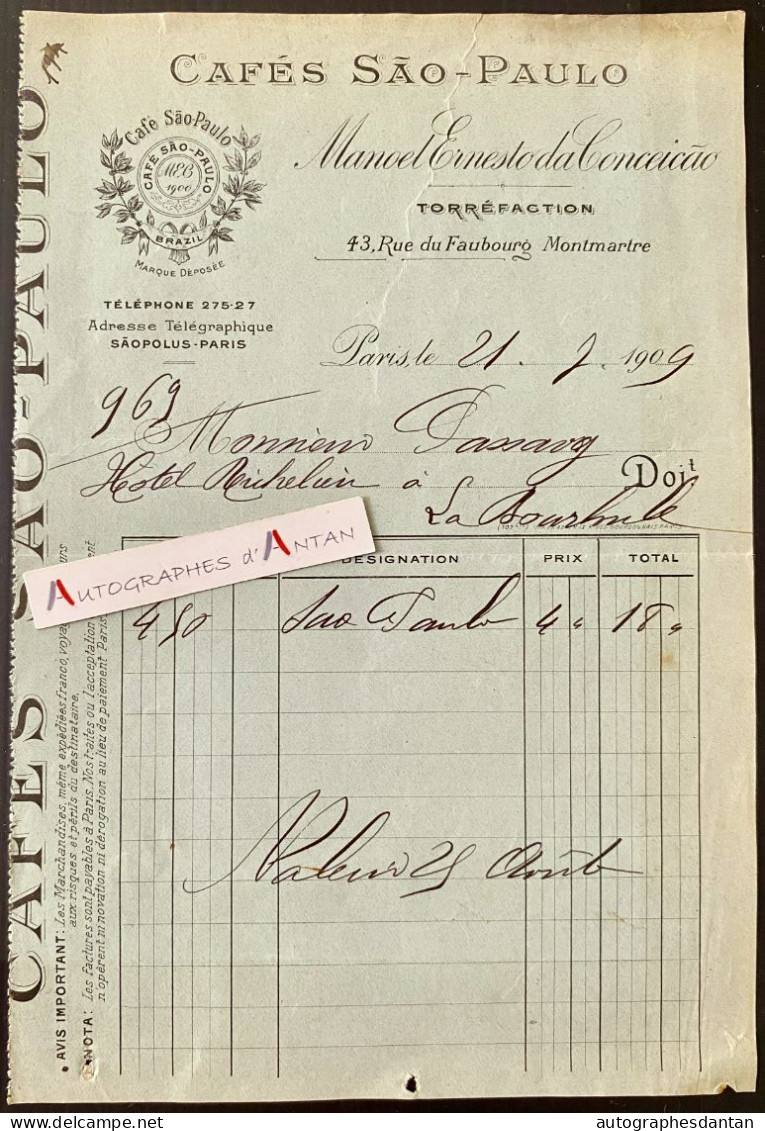 CAFÉS SÃO-PAULO
Café São-Paulo
CAFÉ SÃO-PAULO
MEC
1900
BRAZIL
MARQUE DÉPOSÉE
Manoel Ernesto da Conceição
TORRÉFACTION
43, Rue du Faubourg Montmartre
TÉLÉPHONE 275-27
Adresse Télégraphique
SÃOPOLUS-PARIS
Paris, le 21. 7. 1909
969
Monsieur
Hotel Richelieu à Doit
La Bourboule
DESIGNATION PRIX TOTAL
4 50 Sao Paulo 4 " 18 "
Valeur 25 Août
AUTOGRAPHES d'ANTAN
CAFÉS SÃO-PAULO
• AVIS IMPORTANT: Les Marchandises, même expédiées franco, voyag
aux risques et périls du destinataire.
• NOTA: Les factures sont payables à Paris. Nos traites ou l'acceptation
n'opèrent ni novation ni dérogation au lieu de paiement Paris
autographesdantan